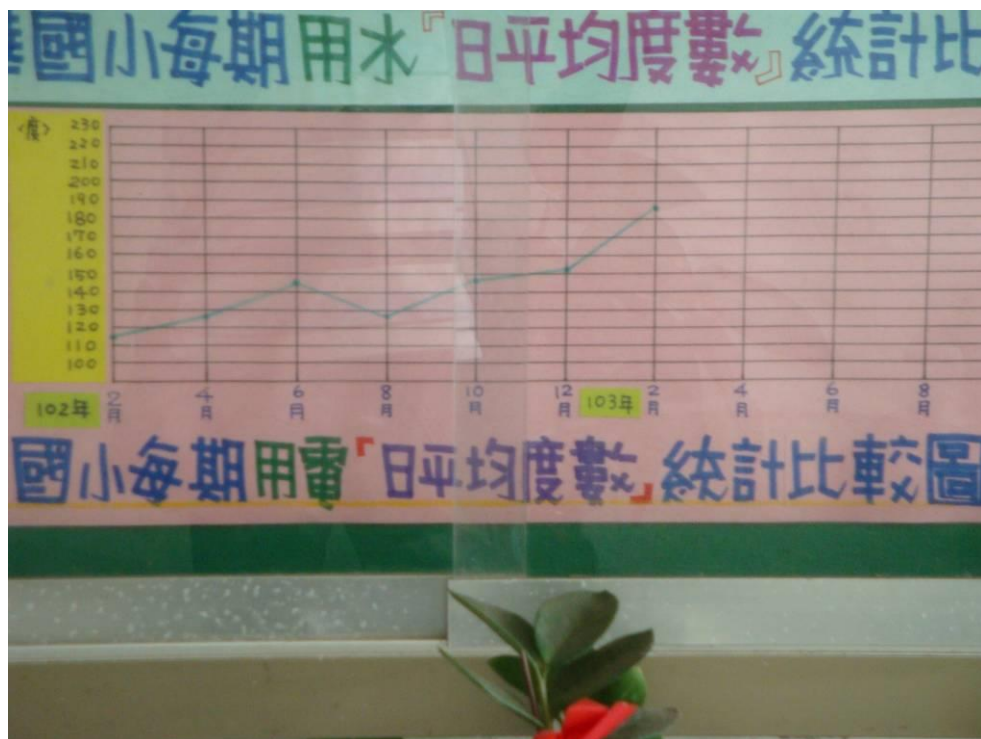 國小每期用水『日平均度數』統計比
<度>
230
220
210
200
190
180
170
160
150
140
130
120
110
100
102年 2月 4月 6月 8月 10月 12月 103年 2月 4月 6月 8月
國小每期用電「日平均度數」統計比較圖